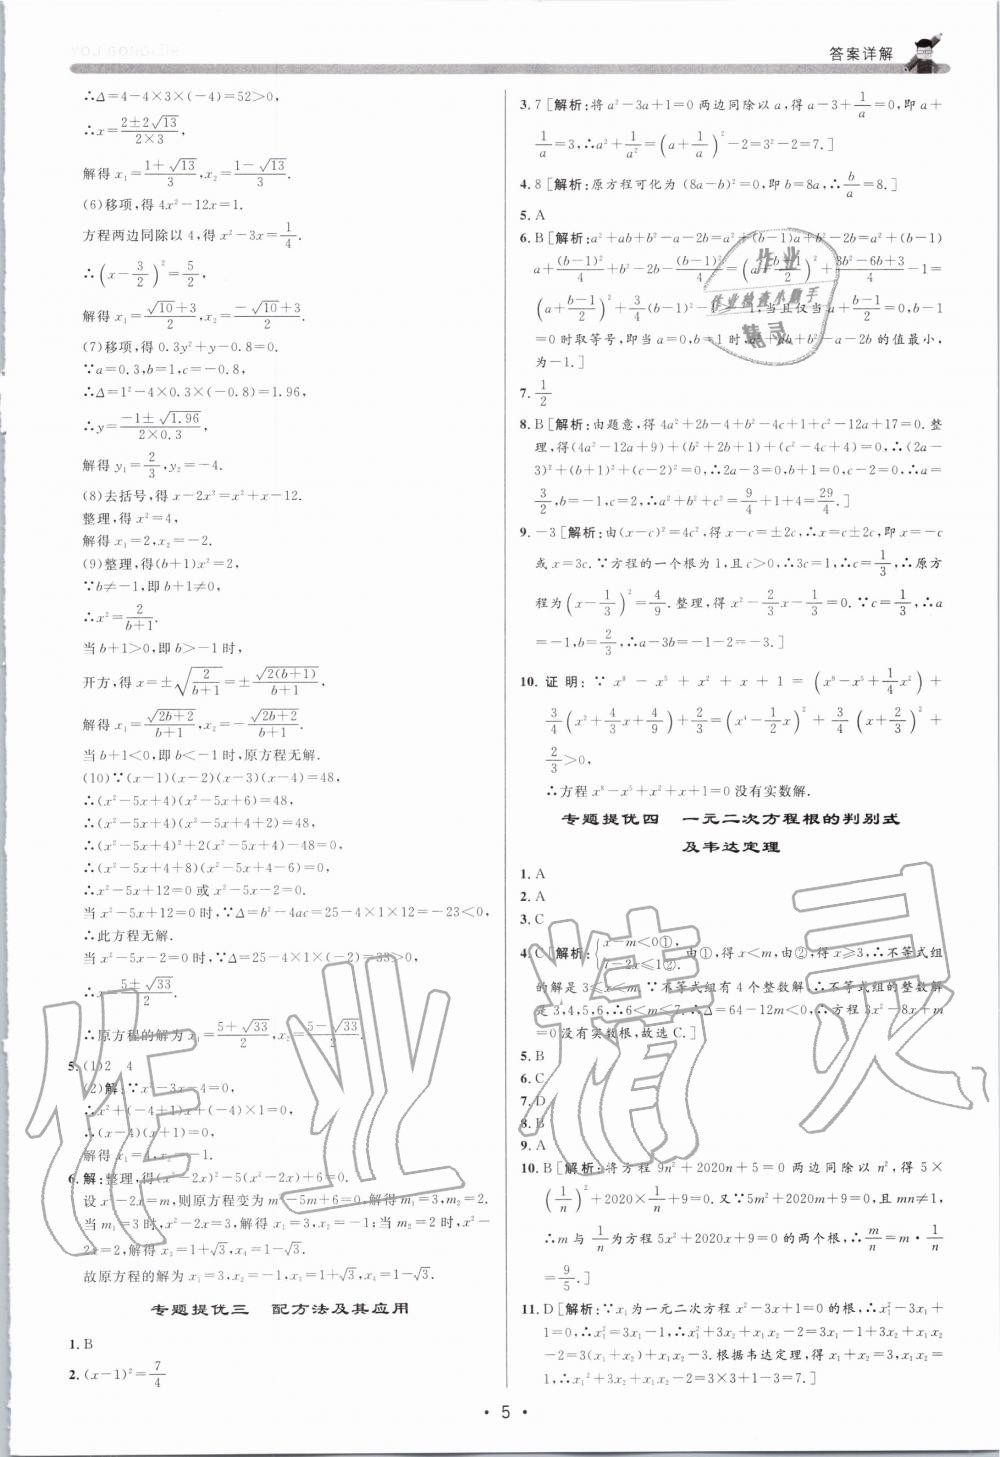 答案详解
∴Δ=4-4×3×(-4)=52>0,
∴x=\frac{2±2\sqrt{13}}{2×3},
解得 x₁=\frac{1+\sqrt{13}}{3},x₂=\frac{1-\sqrt{13}}{3}.
(6)移项,得 4x²-12x=1.
方程两边同除以 4,得 x²-3x=\frac{1}{4}.
∴(x-\frac{3}{2})²=\frac{5}{2},
解得 x₁=\frac{\sqrt{10}+3}{2},x₂=\frac{-\sqrt{10}+3}{2}.
(7)移项,得 0.3y²+y-0.8=0.
∵a=0.3,b=1,c=-0.8,
∴Δ=1²-4×0.3×(-0.8)=1.96,
∴y=\frac{-1±\sqrt{1.96}}{2×0.3},
解得 y₁=\frac{2}{3},y₂=-4.
(8)去括号,得 x-2x²=x²+x-12.
整理,得 x²=4,
解得 x₁=2,x₂=-2.
(9)整理,得(b+1)x²=2,
∵b≠-1,即 b+1≠0,
∴x²=\frac{2}{b+1}.
当 b+1>0,即 b>-1 时,
开方,得 x=±\sqrt{\frac{2}{b+1}}=±\frac{\sqrt{2(b+1)}}{b+1},
解得 x₁=\frac{\sqrt{2b+2}}{b+1},x₂=-\frac{\sqrt{2b+2}}{b+1}.
当 b+1<0,即 b<-1 时,原方程无解.
(10)∵(x-1)(x-2)(x-3)(x-4)=48,
∴(x²-5x+4)(x²-5x+6)=48,
∴(x²-5x+4)²+2(x²-5x+4)-48=0,
∴(x²-5x+4+8)(x²-5x+4-6)=0,
∴x²-5x+12=0 或 x²-5x-2=0.
当 x²-5x+12=0 时,∵Δ=b²-4ac=25-4×1×12=-23<0,
∴此方程无解.
当 x²-5x-2=0 时,∵Δ=25-4×1×(-2)=33>0,
∴x=\frac{5±\sqrt{33}}{2}.
∴原方程的解为 x₁=\frac{5+\sqrt{33}}{2},x₂=\frac{5-\sqrt{33}}{2}.
5. (1)2 4
(2)解:∵x²-3x-4=0,
∴x²+(-4+1)x+(-4)×1=0,
∴(x-4)(x+1)=0,
解得 x₁=4,x₂=-1.
6. 解:整理,得(x²-2x)²-5(x²-2x)+6=0.
设 x²-2x=m,则原方程变为 m²-5m+6=0,解得 m₁=3,m₂=2.
当 m₁=3 时,x²-2x=3,解得 x₁=3,x₂=-1;当 m₂=2 时,x²-
2x=2,解得 x₃=1+√3,x₄=1-√3.
故原方程的解为 x₁=3,x₂=-1,x₃=1+√3,x₄=1-√3.
专题提优三 配方法及其应用
1. B
2. (x-1)²=\frac{7}{4}
3. 7 [解析:将 a²-3a+1=0 两边同除以 a,得 a-3+\frac{1}{a}=0,即 a+
\frac{1}{a}=3,∴a²+\frac{1}{a²}=(a+\frac{1}{a})²-2=3²-2=7.]
4. 8 [解析:原方程可化为 (8a-b)²=0,即 b=8a,∴\frac{b}{a}=8.]
5. A
6. B[解析:a²+ab+b²-a-2b=a²+(b-1)a+b²-2b=a²+(b-1)
a+\frac{(b-1)²}{4}+b²-2b-\frac{(b-1)²}{4}=(a+\frac{b-1}{2})²+\frac{3b²-6b+3}{4}-1=
(a+\frac{b-1}{2})²+\frac{3}{4}(b-1)²-1,当且仅当 a+\frac{b-1}{2}=0,b-1
=0 时取等号,即当 a=0,b=1 时,a²+ab+b²-a-2b 的值最小,
为-1.]
7. \frac{1}{2}
8. B[解析:由题意,得 4a²+2b-4+b²-4c+1+c²-12a+17=0.整
理,得(4a²-12a+9)+(b²+2b+1)+(c²-4c+4)=0,∴(2a-
3)²+(b+1)²+(c-2)²=0,∴2a-3=0,b+1=0,c-2=0,∴a=
\frac{3}{2},b=-1,c=2,∴a²+b²+c²=\frac{9}{4}+1+4=\frac{29}{4}.]
9. -3[解析:由(x-c)²=4c²,得 x-c=±2c,∴x=c±2c,即 x=-c
或 x=3c.∵方程的一个根为 1,且 c>0,∴3c=1,∴c=\frac{1}{3},∴原方
程为(x-\frac{1}{3})²=\frac{4}{9}.整理,得 x²-\frac{2}{3}x-\frac{1}{3}=0.∵c=\frac{1}{3},∴a
=-1,b=\frac{2}{3},∴a-3b=-1-2=-3.]
10. 证明:∵ x⁸ - x⁵ + x² + x + 1 = (x⁸-x⁵+\frac{1}{4}x²) +
\frac{3}{4}(x²+\frac{4}{3}x+\frac{4}{9})+\frac{2}{3}=(x⁴-\frac{1}{2}x)²+\frac{3}{4}(x+\frac{2}{3})²+
\frac{2}{3}>0,
∴方程 x⁸-x⁵+x²+x+1=0 没有实数解.
专题提优四 一元二次方程根的判别式
及韦达定理
1. A
2. A
3. C
4. C[解析:{x-m<0①, 7-2x≤1②.由①,得 x<m,由②,得 x≥3,∴不等式组
的解是 3≤x<m.∵不等式组有 4 个整数解,∴不等式组的整数解
是 3,4,5,6,∴6<m≤7,∴Δ=64-12m<0,∴方程 3x²-8x+m
=0 没有实数根,故选 C.]
5. B
6. C
7. D
8. B
9. A
10. B[解析:将方程 9n²+2020n+5=0 两边同除以 n²,得 5×
(\frac{1}{n})²+2020×\frac{1}{n}+9=0.又∵5m²+2020m+9=0,且 mn≠1,
∴m 与 \frac{1}{n} 为方程 5x²+2020x+9=0 的两个根,∴\frac{m}{n}=m·\frac{1}{n}
=\frac{9}{5}.]
11. D[解析:∵x₁ 为一元二次方程 x²-3x+1=0 的根,∴x₁²-3x₁+
1=0,∴x₁²=3x₁-1,∴x₁²+3x₂+x₁x₂-2=3x₁-1+3x₂+x₁x₂
-2=3(x₁+x₂)+x₁x₂-3.根据韦达定理,得 x₁+x₂=3,x₁x₂=
1,∴x₁²+3x₂+x₁x₂-2=3×3+1-3=7.]
• 5 •
作业
作业检查小助手
精灵
作业精灵